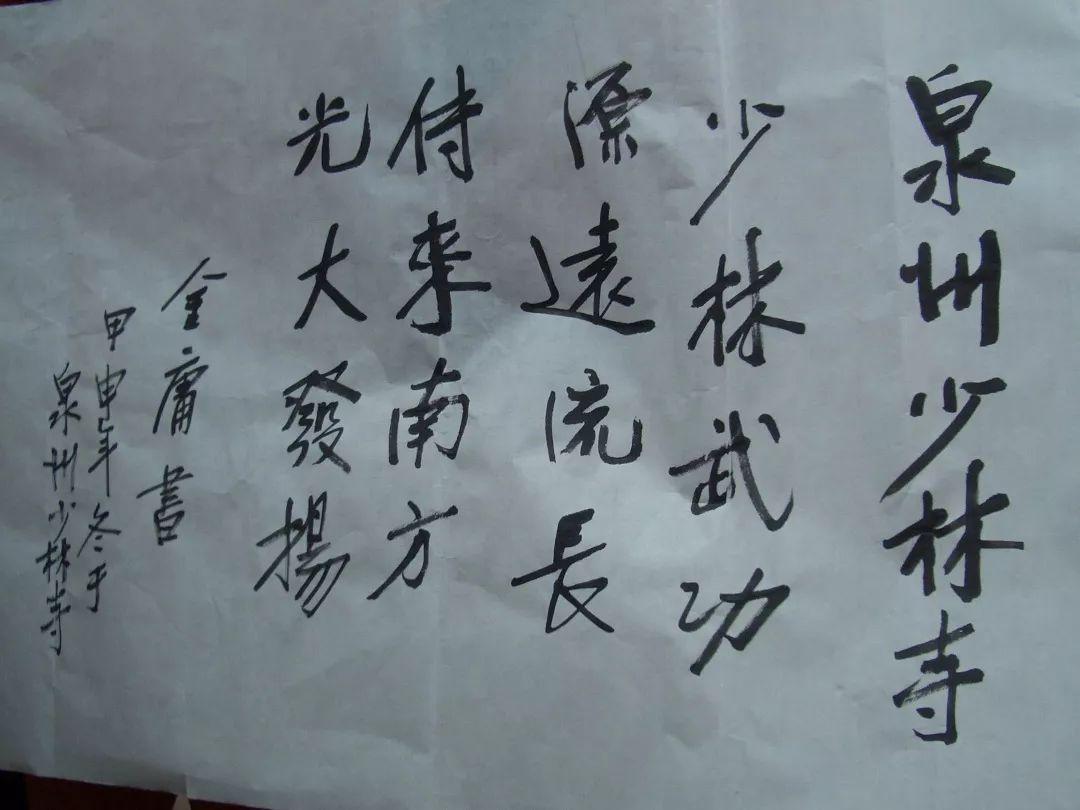 泉州少林寺
少林武功
源遠流長
傳來南方
光大發揚
金庸書
甲申年冬于
泉州少林寺